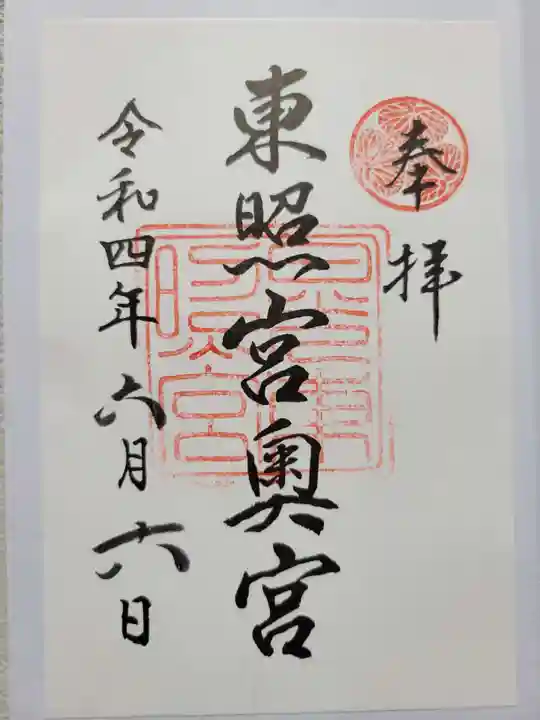 奉拝
東照宮奥宮
令和四年六月十六日